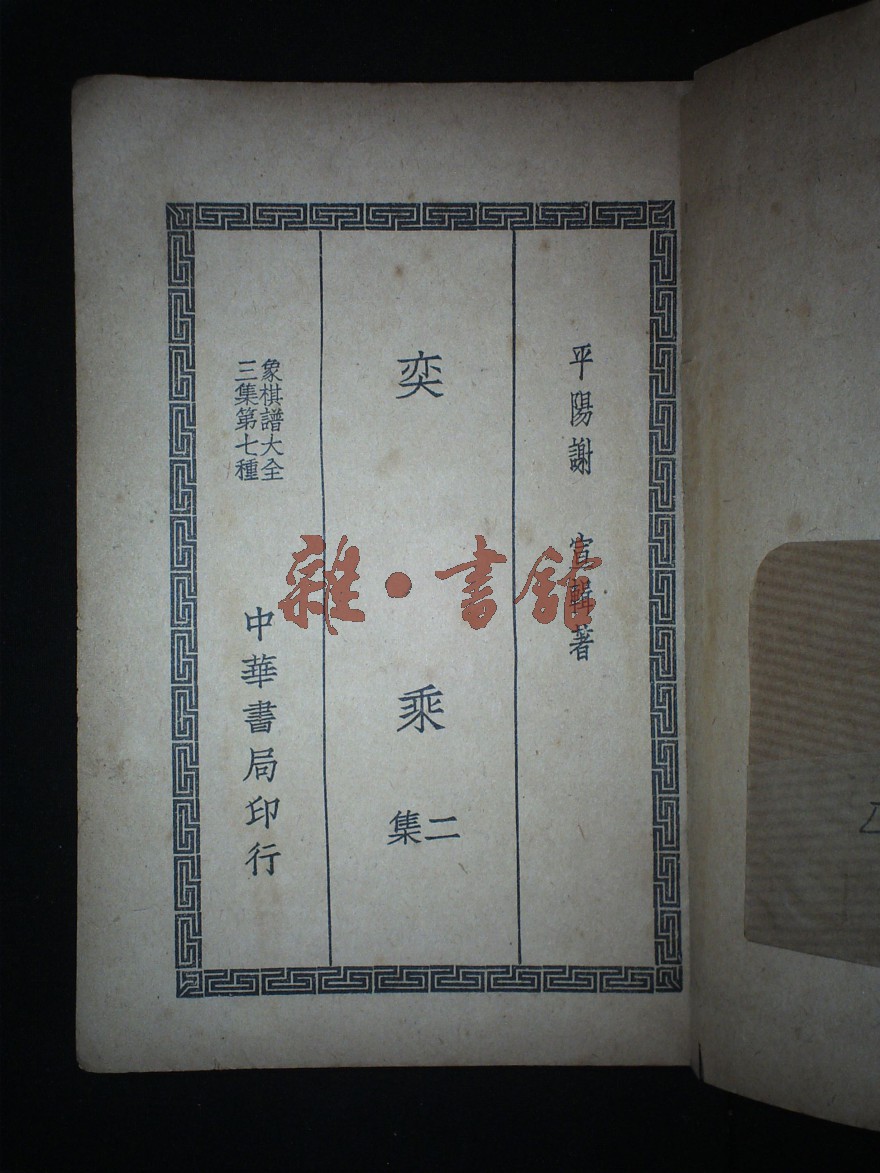 平陽謝 宣輯著
奕 乘 二集
象棋譜大全
三集第七種
中華書局印行
雜·書館